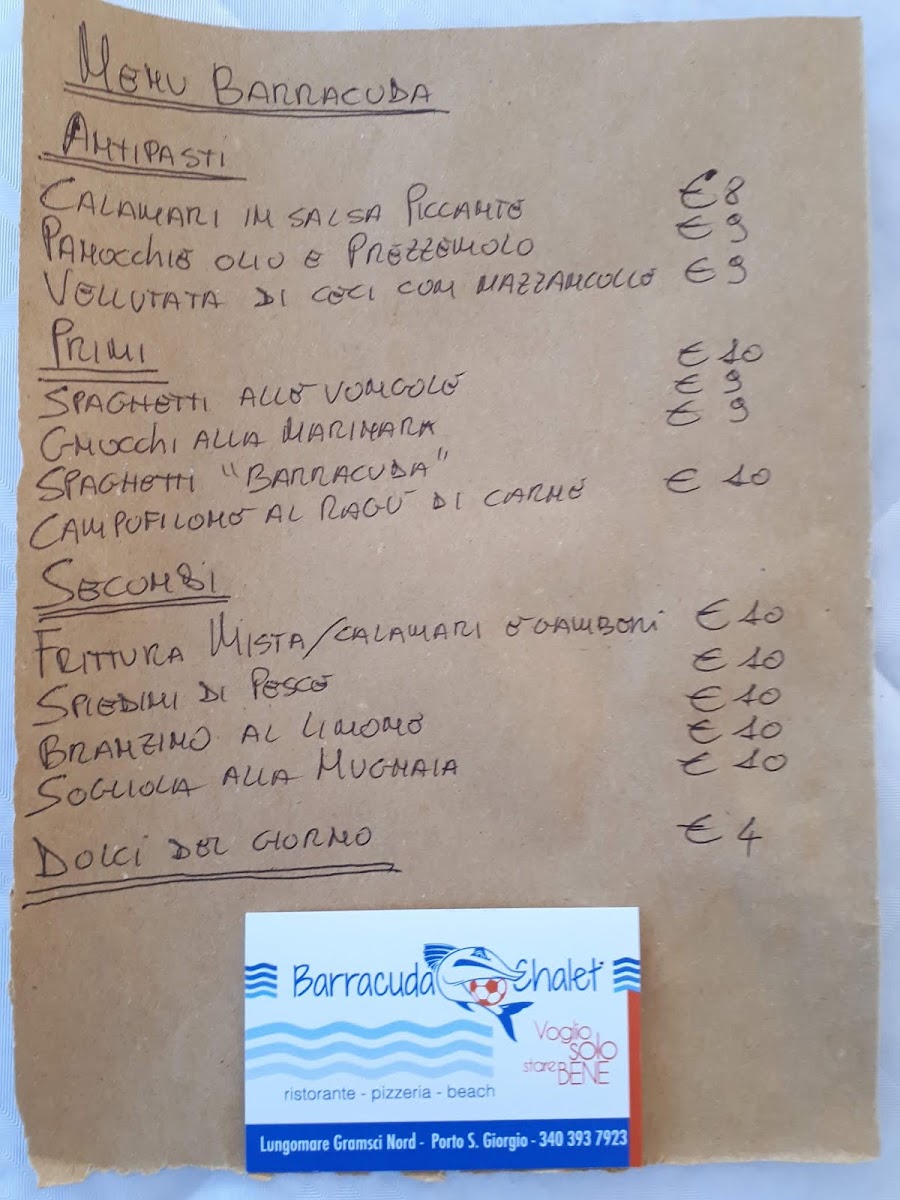 MENU BARRACUDA
ANTIPASTI
CALAMARI IN SALSA PICCANTE € 8
PANOCCHIE OLIO E PREZZEMOLO € 9
VELLUTATA DI CECI CON MAZZANCOLLE € 9
PRIMI
SPAGHETTI ALLE VONGOLE € 10
GNOCCHI ALLA MARINARA € 9
SPAGHETTI "BARRACUDA" € 9
CAMPOFILONE AL RAGÙ DI CARNE € 10
SECONDI
FRITTURA MISTA/CALAMARI E GAMBERI € 10
SPIEDINI DI PESCE € 10
BRANZINO AL LIMONE € 10
SOGLIOLA ALLA MUGNAIA € 10
€ 10
DOLCI DEL GIORNO € 4
Barracuda Chalet
Voglio
solo
stare BENE
ristorante - pizzeria - beach
Lungomare Gramsci Nord - Porto S. Giorgio - 340 393 7923